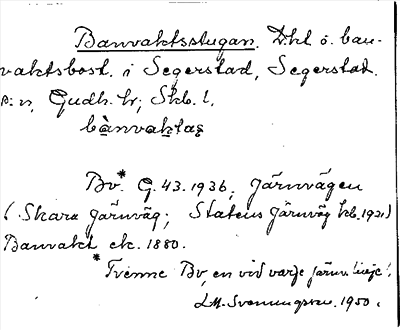 Banvaktsstugan. Dht o. ban-
vaktsbost. i Segerstad, Segerstads
s:n, Gudh. hr; Skb. l.
bànvaktaṣ
Bv.* G. 43. 1936; Järnvägen
(Skara Järnväg; Statens Järnväg 1931)
Banvakt ek. 1880.
* Tvenne Bv, en vid varje järnv. linje!
1950.